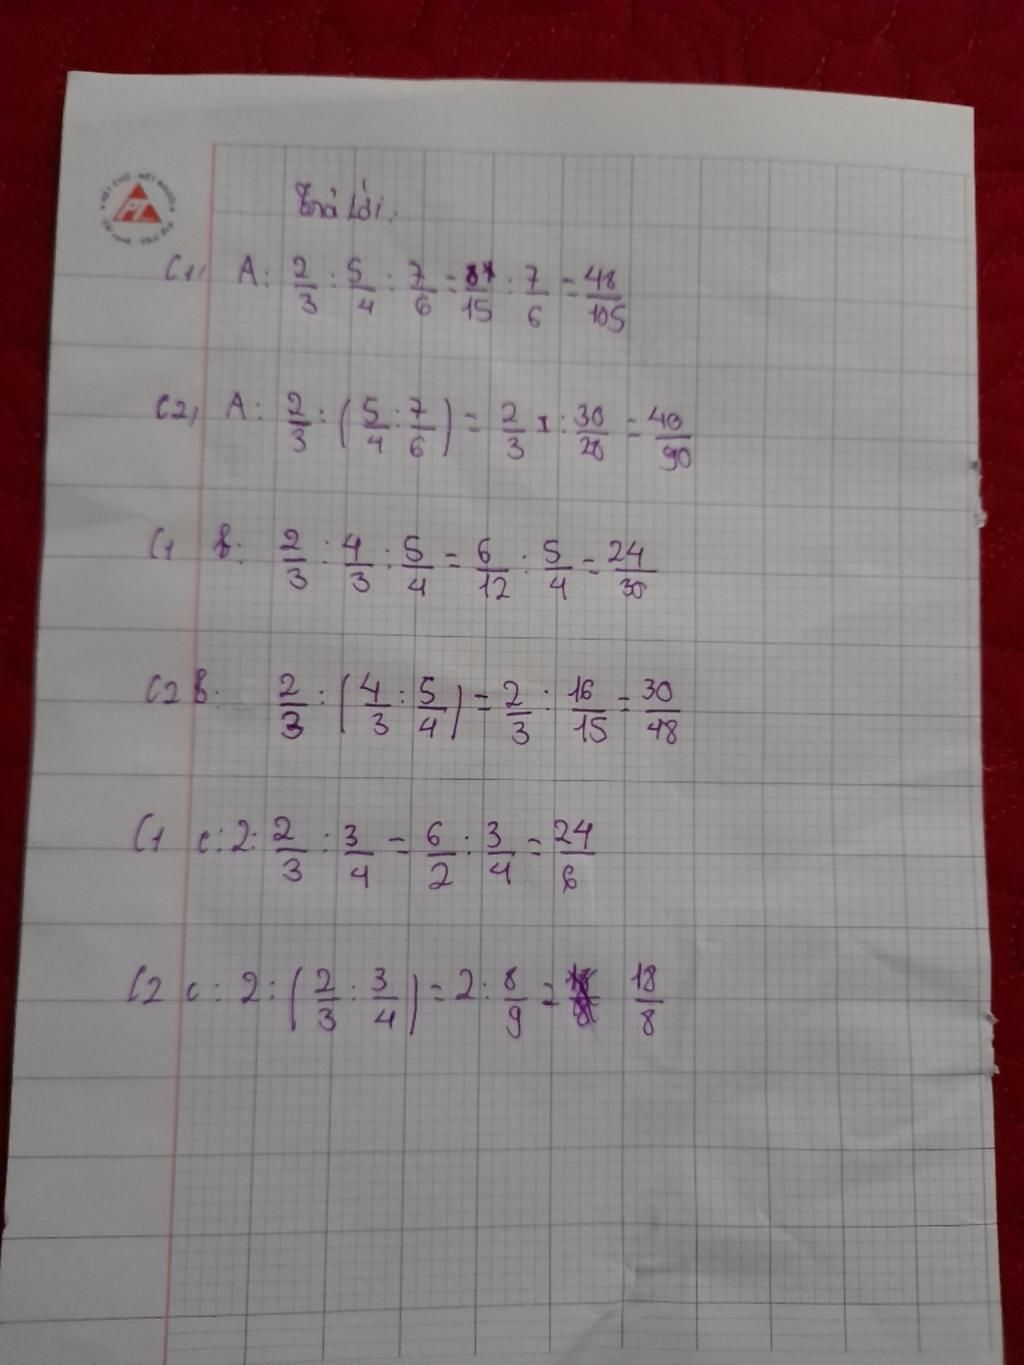 Trả lời.
C1, A: 2/3 : 5/4 : 7/6 = 8/15 : 7/6 = 48/105
C2, A: 2/3 : (5/4 : 7/6) = 2/3 : 30/28 = 40/90
C1 b: 2/3 : 4/3 : 5/4 = 6/12 : 5/4 = 24/30
C2 b: 2/3 : (4/3 : 5/4) = 2/3 : 16/15 = 30/48
C1 c: 2 : 2/3 : 3/4 = 6/2 : 3/4 = 24/6
C2 c: 2 : (2/3 : 3/4) = 2 : 8/9 = 18/8